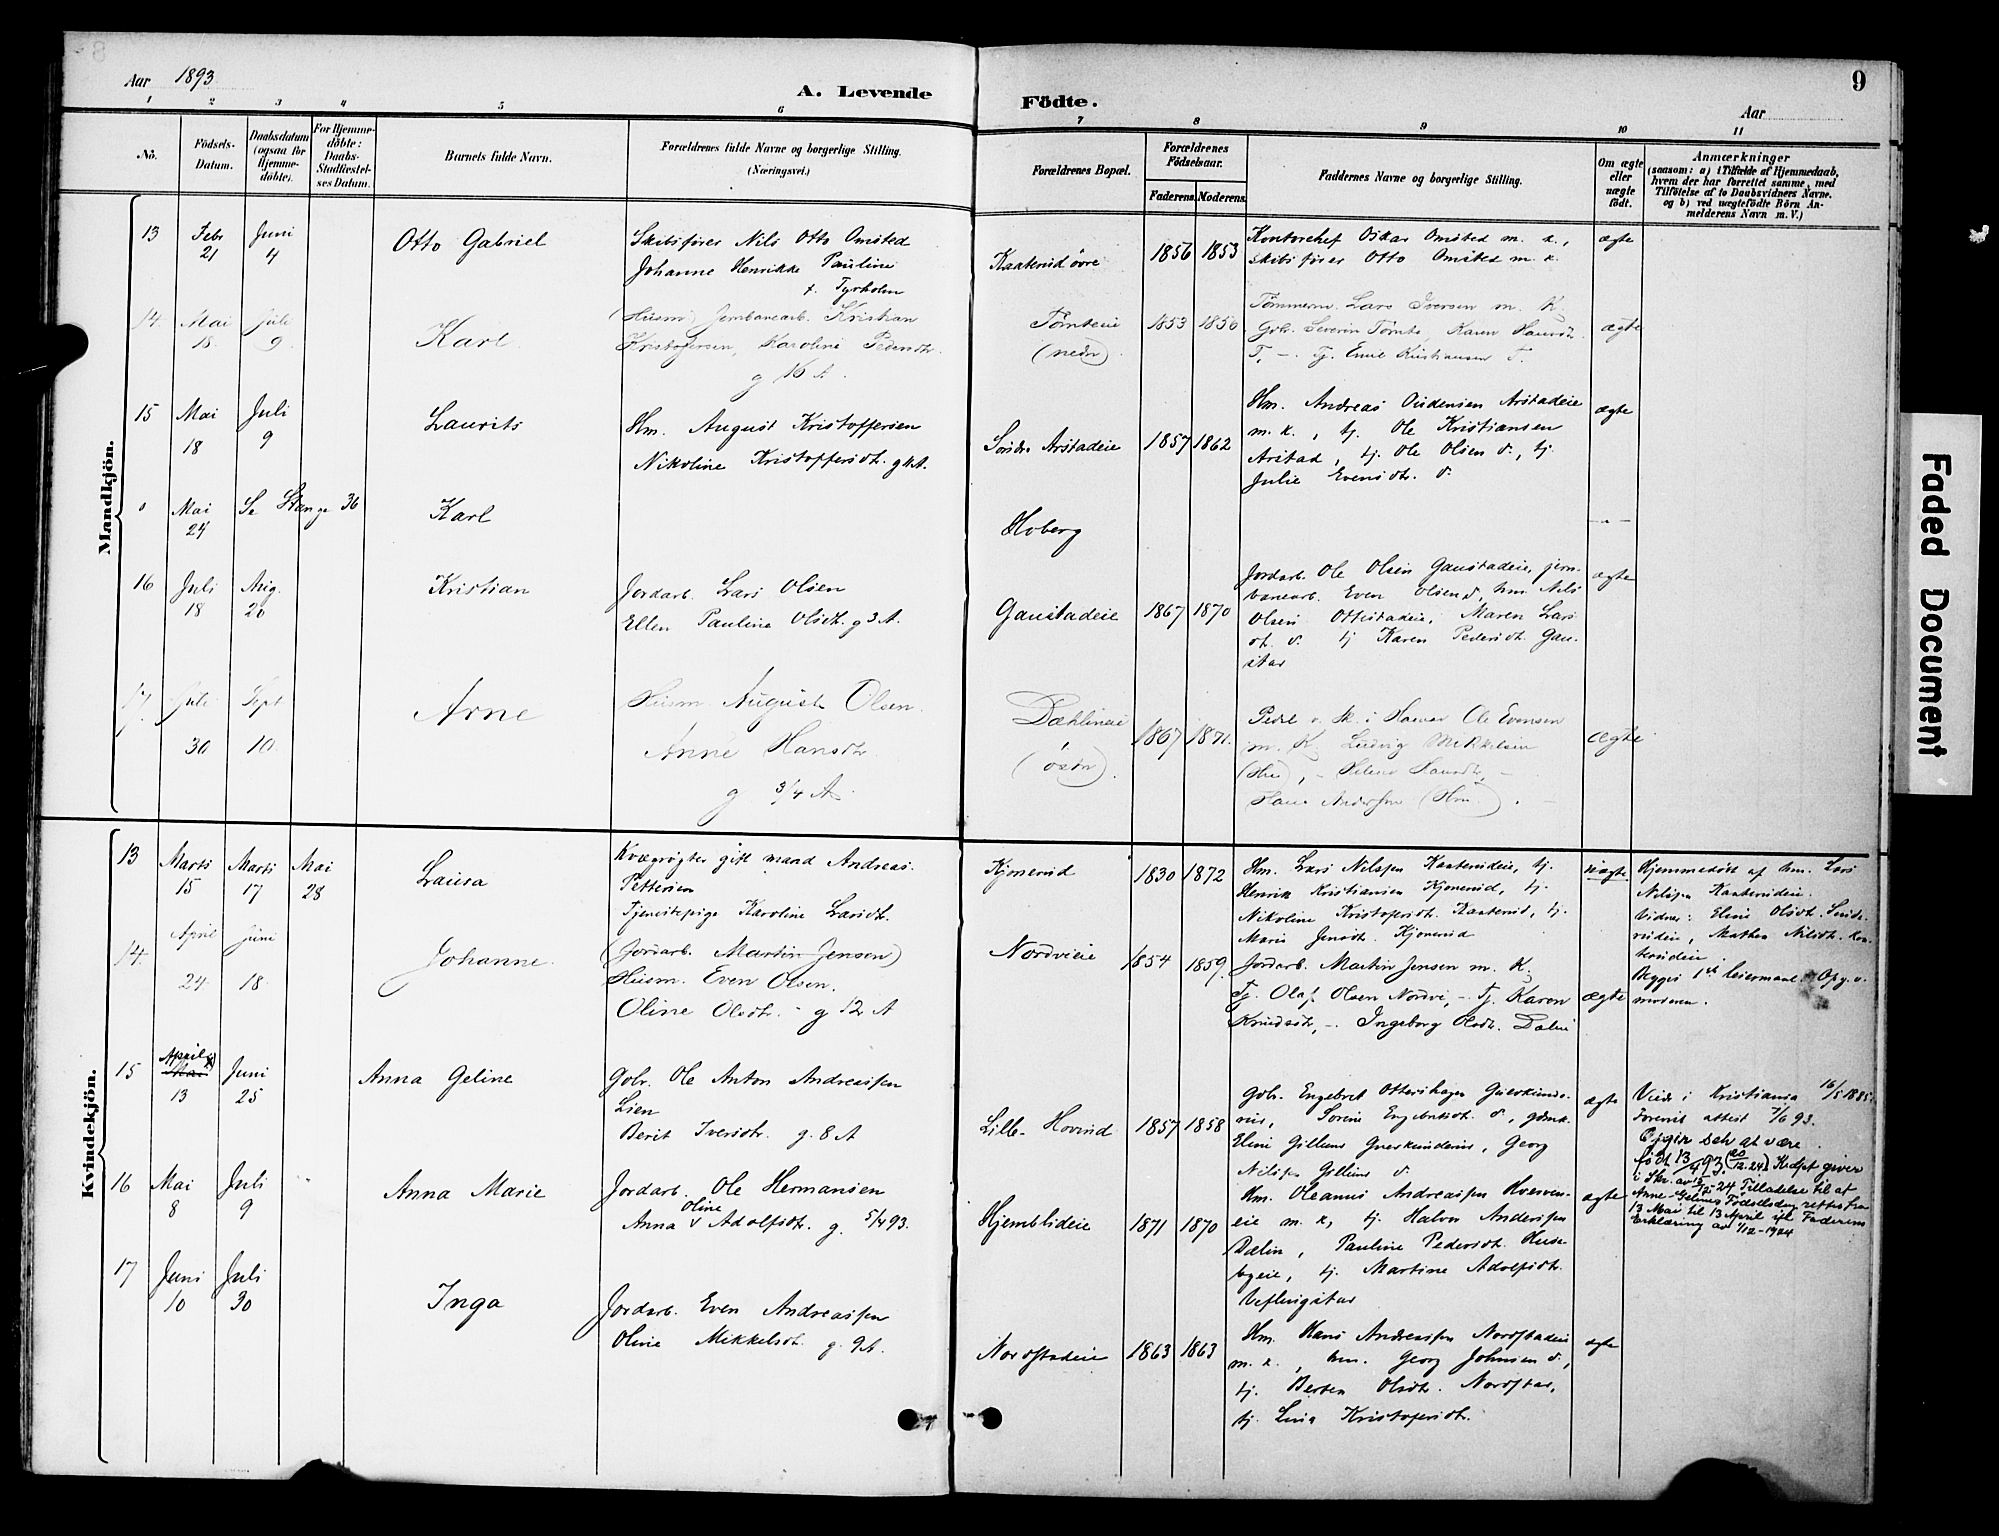 Aar 1893
A. Levende
Födte.
Aar
9
1 2 3 4 5 6 7 8 9 10 11
No.
Födsels-
Datum.
Daabsdatum
(ogsaa for
Hjemme-
döbte).
For Hjemme-
döbte:
Daabs-
Stadfæstel-
ses Datum.
Barnets fulde Navn.
Forældrenes fulde Navne og borgerlige Stilling.
(Næringsvei.)
Forældrenes Bopæl.
Forældrenes
Födselsaar.
Faderens. Moderens.
Faddernes Navne og borgerlige Stilling.
Om ægte
eller
uægte
födt.
Anmærkninger
(saasom: a) i Tilfælde af Hjemmedaab,
hvem der har forrettet samme, med
Tilföielse af to Daabsvidners Navne.
og b) ved uægtefödte Börn An-
melderens Navn m. V.)
Mandkjön.
13 Febr 21 Juni 4
Otto Gabriel
Skibsfører Nils Otto Omsted
Johanne Henrikke Pauline
f. Tyrholm
Kaaterud øvre
1856 1853
Kontorchef Oskar Omsted m. k.,
skibsfører Otto Omsted m. k.
ægte
14. Mai 18 Juli 9
Karl
(Husm) Jernbanearb. Kristian
Kristofersen, Karoline Pedersdtr.
g 16 A.
Tømteeie
(nedre)
1853 1850
Tømmerm. Lars Iversen m. K.
Gbr. Severin Tømte, Karen Hansdtr.
T, - Tj. Emil Kristiansen T.
ægte
15 Mai 18 Juli 9
Laurits
Hm. August Kristoffersen
Nikoline Kristoffersdtr. g 11 A.
Søndre Arstadeie
1857 1862
Hm. Andreas Audensen Arstadeie
m. k., tj. Ole Kristiansen
Arstad, tj. Ole Olsen d., tj.
Julie Evensdtr. d.
ægte
0 Mai 24 Se Stange 36
Karl
Hoberg
-"-
16 Juli 18 Aug. 20
Kristian
Jordarb. Lars Olsen
Ellen Pauline Olsdtr. g 3 A.
Gaustadeie
1867 1870
Jordarb. Ole Olsen Gaustadeie, jern-
banearb. Even Olsen d., hm. Nils
Olsen Ottestadeie, Maren Lars-
dtr. d. tj Karen Pedersdtr. Gau-
stad
ægte
17. Juli 30 Sept 10.
Arne
Husm August Olsen.
Anne Hansdtr.
g 3/4 A.
Dæhlineie
(østre).
1867 1871.
Ole Evensen
m. K. Ludvig Mikkelsen
(Hm), - Helene Hansdtr, -
Hans Andersen (Hm). -
ægte
Kvindekjön.
13 Marts 15 Marts 17 Mai 28
Laura
Kvægrøgter gift mand Andreas
Pettersen
Tjenestepige Karoline Larsdtr.
Kjonerud
1830 1872
Hm. Lars Nilssen Kaaterudeie, tj.
Henrik Kristiansen Kjonerud, tj.
Nikoline Kristofersdtr. Kaaterud, tj.
Marie Jensdtr. Kjonerud
uægte
Hjemmedøbt af hm. Lars
Nilssen Kaaterudeie.
Vidner: Eline Olsdtr. Sande-
rudeie, Mathea Nilsdtr. Kaa-
terudeie.
Begges 1ste leiermaal. Opg. v.
moderen.
14. April 24 Juni 18
Johanne.
(Jordarb. Martin Jensen)
Husm. Even Olsen.
Oline Olsdtr. - g 12 A
Nordvieie
1854 1859.
Jordarb. Martin Jensen m. K.
Tj. Olaf Olsen Nordvi, - Tj. Karen
Knudsdtr, -. Ingeborg Olsdtr. Dælin
ægte
15 April x) Mai 13 Juni 25
Anna Geline
Gbr. Ole Anton Andreassen
Lien
Berit Iversdtr. g. 8 A
Lille-Hovind
1857 1858
Gbr. Engebret Ottershagen Gaverkinde-
rus, Sorine Engebretsdtr. d., gdmk.
Eline Gillund Gaverkinderus, Georg
Nilsen Gillund d.
ægte
Viede i Kristiania 16/5 1885.
Forevist attest 7/6 93.
Opgir selv at være
født 13/4 93. (20/12-24). Kirkedpt giver
i Skr. av 12-24 Tilladelse til at
Anne-Gelines Fødselsdag rettes fra
13 Mai til 13 April ifl. Faderens
Erklæring av 1/12-1924
16 Mai 8 Juli 9
Anna Marie
Jordarb. Ole Hermansen
Anna Oline Adolfsdtr. g. 5/4 93.
Hjemblideie
1871 1870
Hm. Oleanus Andreassen Hverven-
eie m. k, tj. Halvor Anderssen
Dælin, Pauline Pedersdtr. Huse-
byeie, tj. Martine Adolfsdtr.
Veflingstad
ægte
17 Juni 10 Juli 30
Inga
Jordarb. Even Andreassen
Oline Mikkelsdtr. g. 9 A.
Nordstadeie
1863 1863
Hm. Hans Andreassen Nordstadeie
m. k., hm. Georg Johnsen d.,
tj. Berten Olsdtr. Nordstad,
tj. Lina Kristofersdtr.
ægte
Faded Document